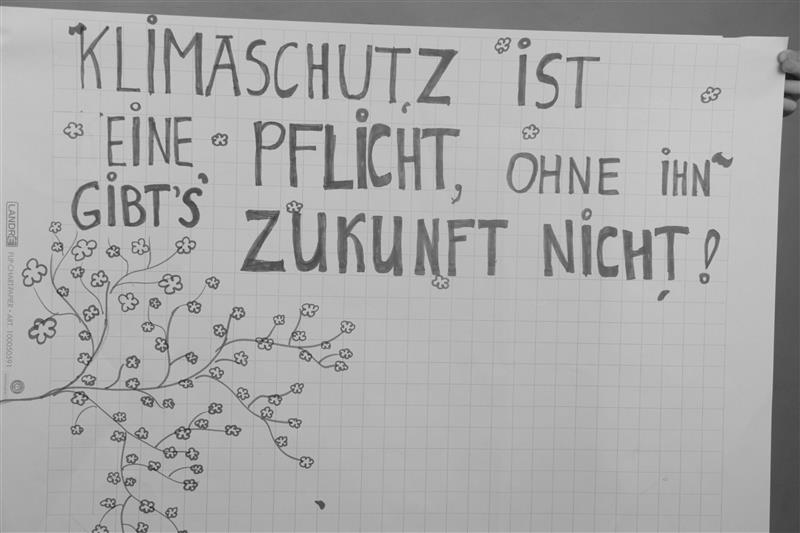 KLIMASCHUTZ IST
EINE PFLICHT, OHNE IHN
GIBT'S ZUKUNFT NICHT!
LANDRÉ FLIP-CHARTPAPIER • ART. 100050591